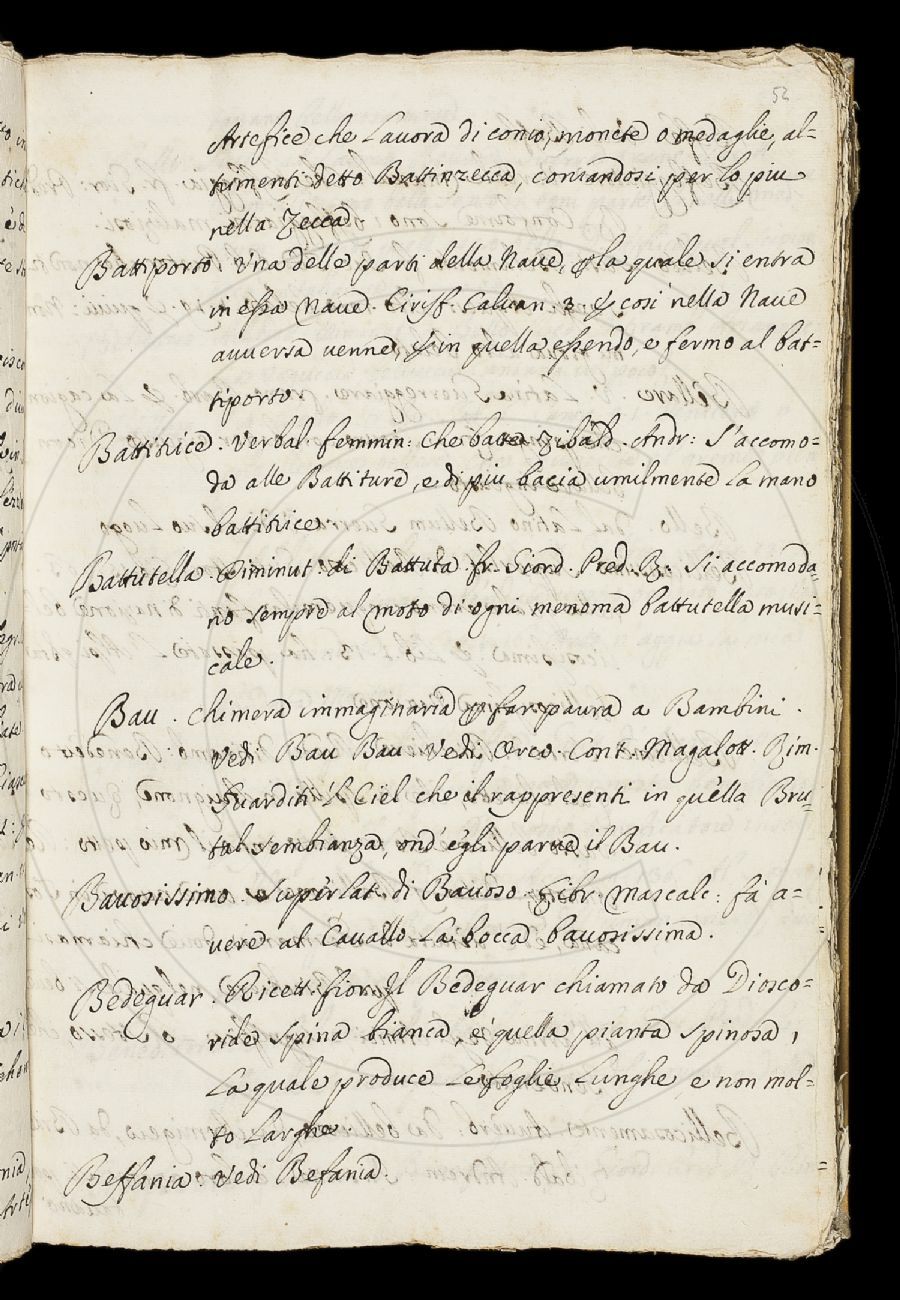 52
Artefice che Lavora di conio, monete o medaglie, al=
trimenti detto Battinzecca, coniandosi per lo piu
nella Zecca
Battiporto. Una delle parti della Nave, p la quale si entra
in essa Nave. Ciriff. Calvan. 3. E così nella Nave
avversa venne, E in quella essendo, e fermo al bat=
tiporto
Battitrice. Verbal. femmin: Che batte Zibald. Andr: S'accomo=
da alle Battiture, e di piu bacia umilmente La mano
battitrice
Battutella. Diminut: di Battuta. fr. Giord. Pred. R: Si accomoda=
no sempre al moto di ogni menoma battutella musi=
cale.
Bau. Chimera immaginaria p far paura a Bambini.
Vedi Bau Bau. Vedi Orco. Cont. Magalott. Rim.
Guarditi 'l Ciel che il rappresenti in quella Bru=
tal sembianza, ond'egli parve il Bau.
Bavosissimo. Superlat. di Bavoso. Libr. Mascalc: fà a=
vere al Cavallo La bocca bavosissima.
Bedeguar. Ricett. fior. Il Bedeguar chiamato da Diosco=
ride spina bianca, è quella pianta spinosa,
La quale produce Le foglie Lunghe, e non mol=
to Larghe.
Beffania: Vedi Befania.